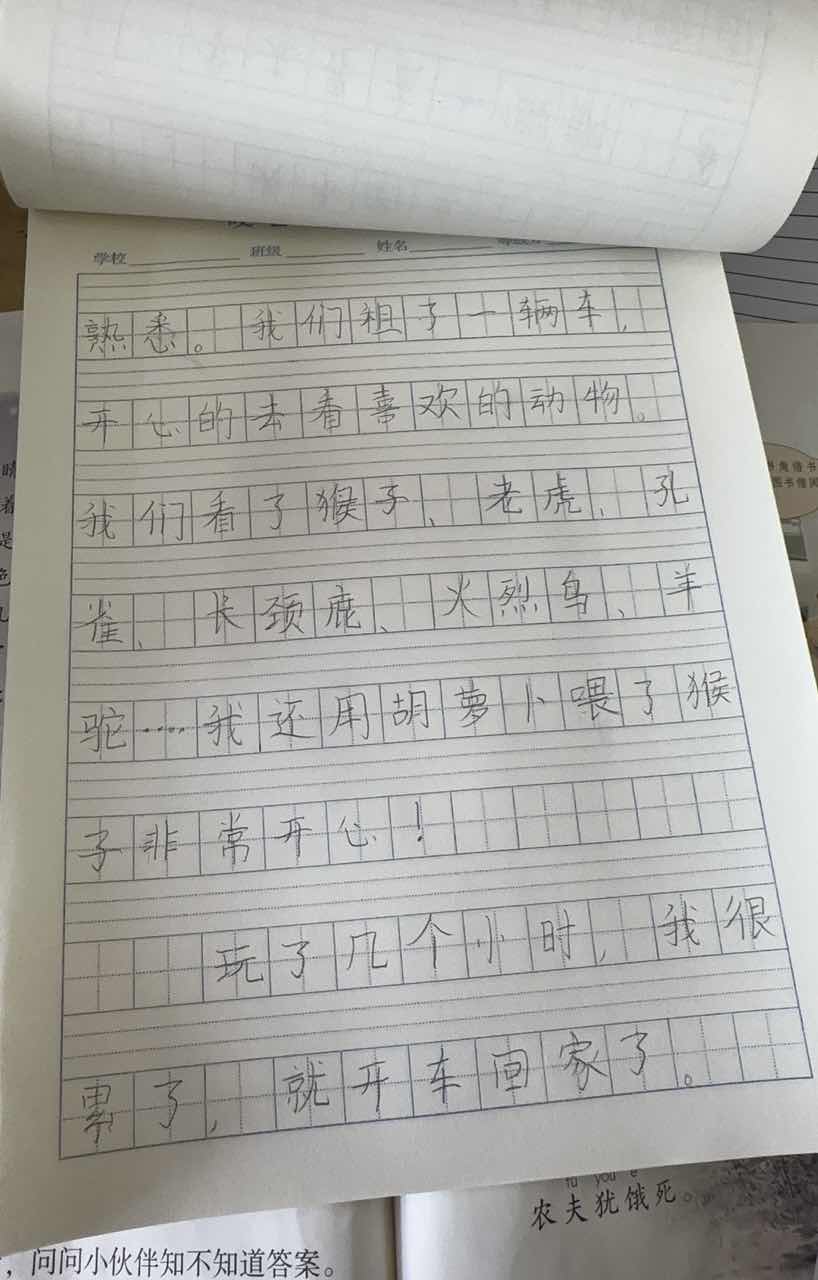 学校 班级 姓名
熟悉。我们租了一辆车,
开心的去看喜欢的动物。
我们看了猴子、老虎、孔
雀、长颈鹿、火烈鸟、羊
驼……我还用胡萝卜喂了猴
子非常开心!
玩了几个小时,我很
累了,就开车回家了。
fu you e
农夫犹饿死。
,问问小伙伴知不知道答案。